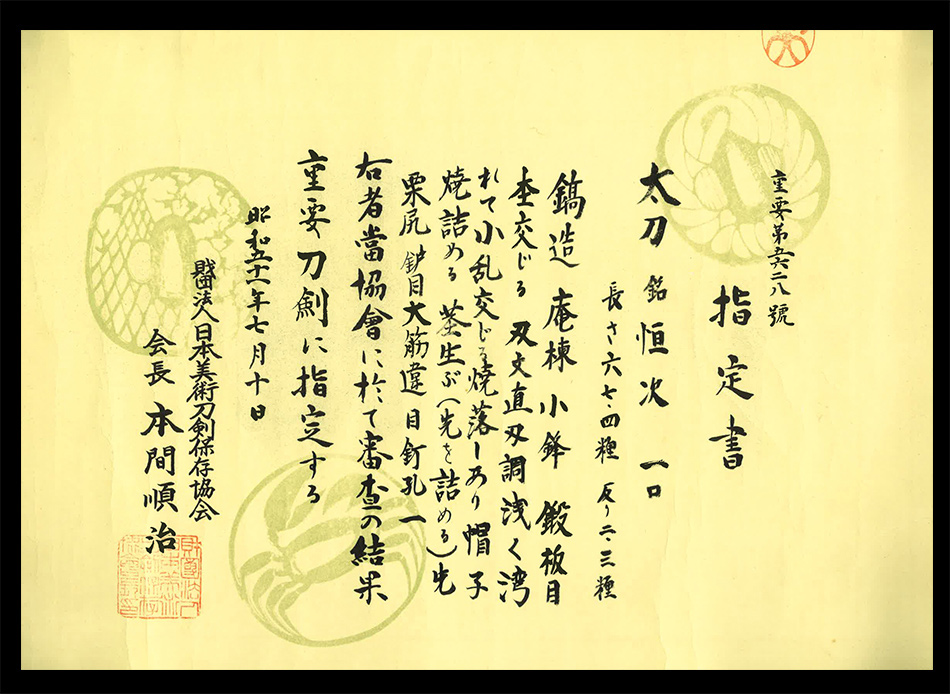 重要第五六二八號
指定書
太刀 銘 恒次 一口
長さ六七・四糎 反り二・三糎
鎬造 庵棟 小鋒 鍛板目
杢交じる 刃文直刃調浅く湾
れて小乱交じる焼落しあり帽子
焼詰める 茎生ぶ(先を詰める)先
栗尻 鑢目大筋違 目釘孔一
右者當協會に於て審査の結果
重要刀劍に指定する
昭和五十一年七月十日
財団法人日本美術刀剣保存協会
会長 本間順治